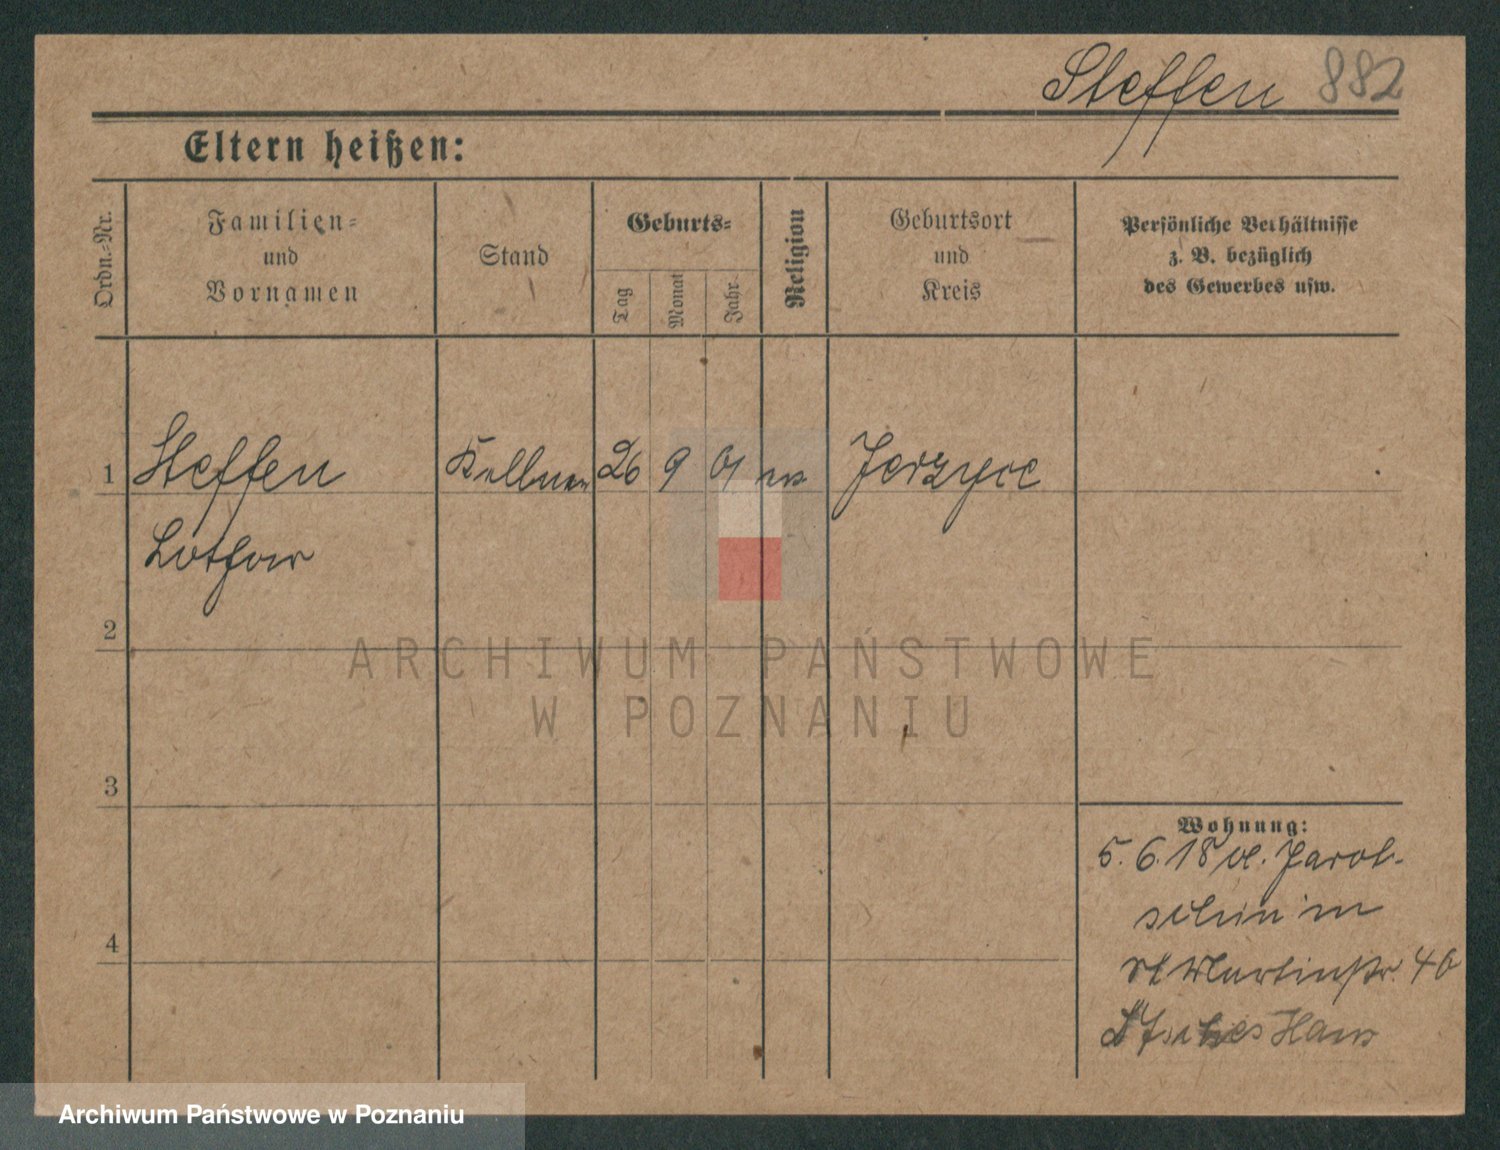 Steffen 882
Eltern heißen:
Ordn.-Nr.
Familien-
und
Vornamen
Stand
Geburts-
Tag
Monat
Jahr.
Religion
Geburtsort
und
Kreis
Persönliche Verhältnisse
z. B. bezüglich
des Gewerbes usw.
1 Steffen Kellner 26 9 01 ev. Jerzyce
Lothar
2
3
4
Wohnung:
5. 6. 18 v. Jarot-
schin in
St Martinstr. 46
Haus
ARCHIWUM PAŃSTWOWE
W POZNANIU
Archiwum Państwowe w Poznaniu